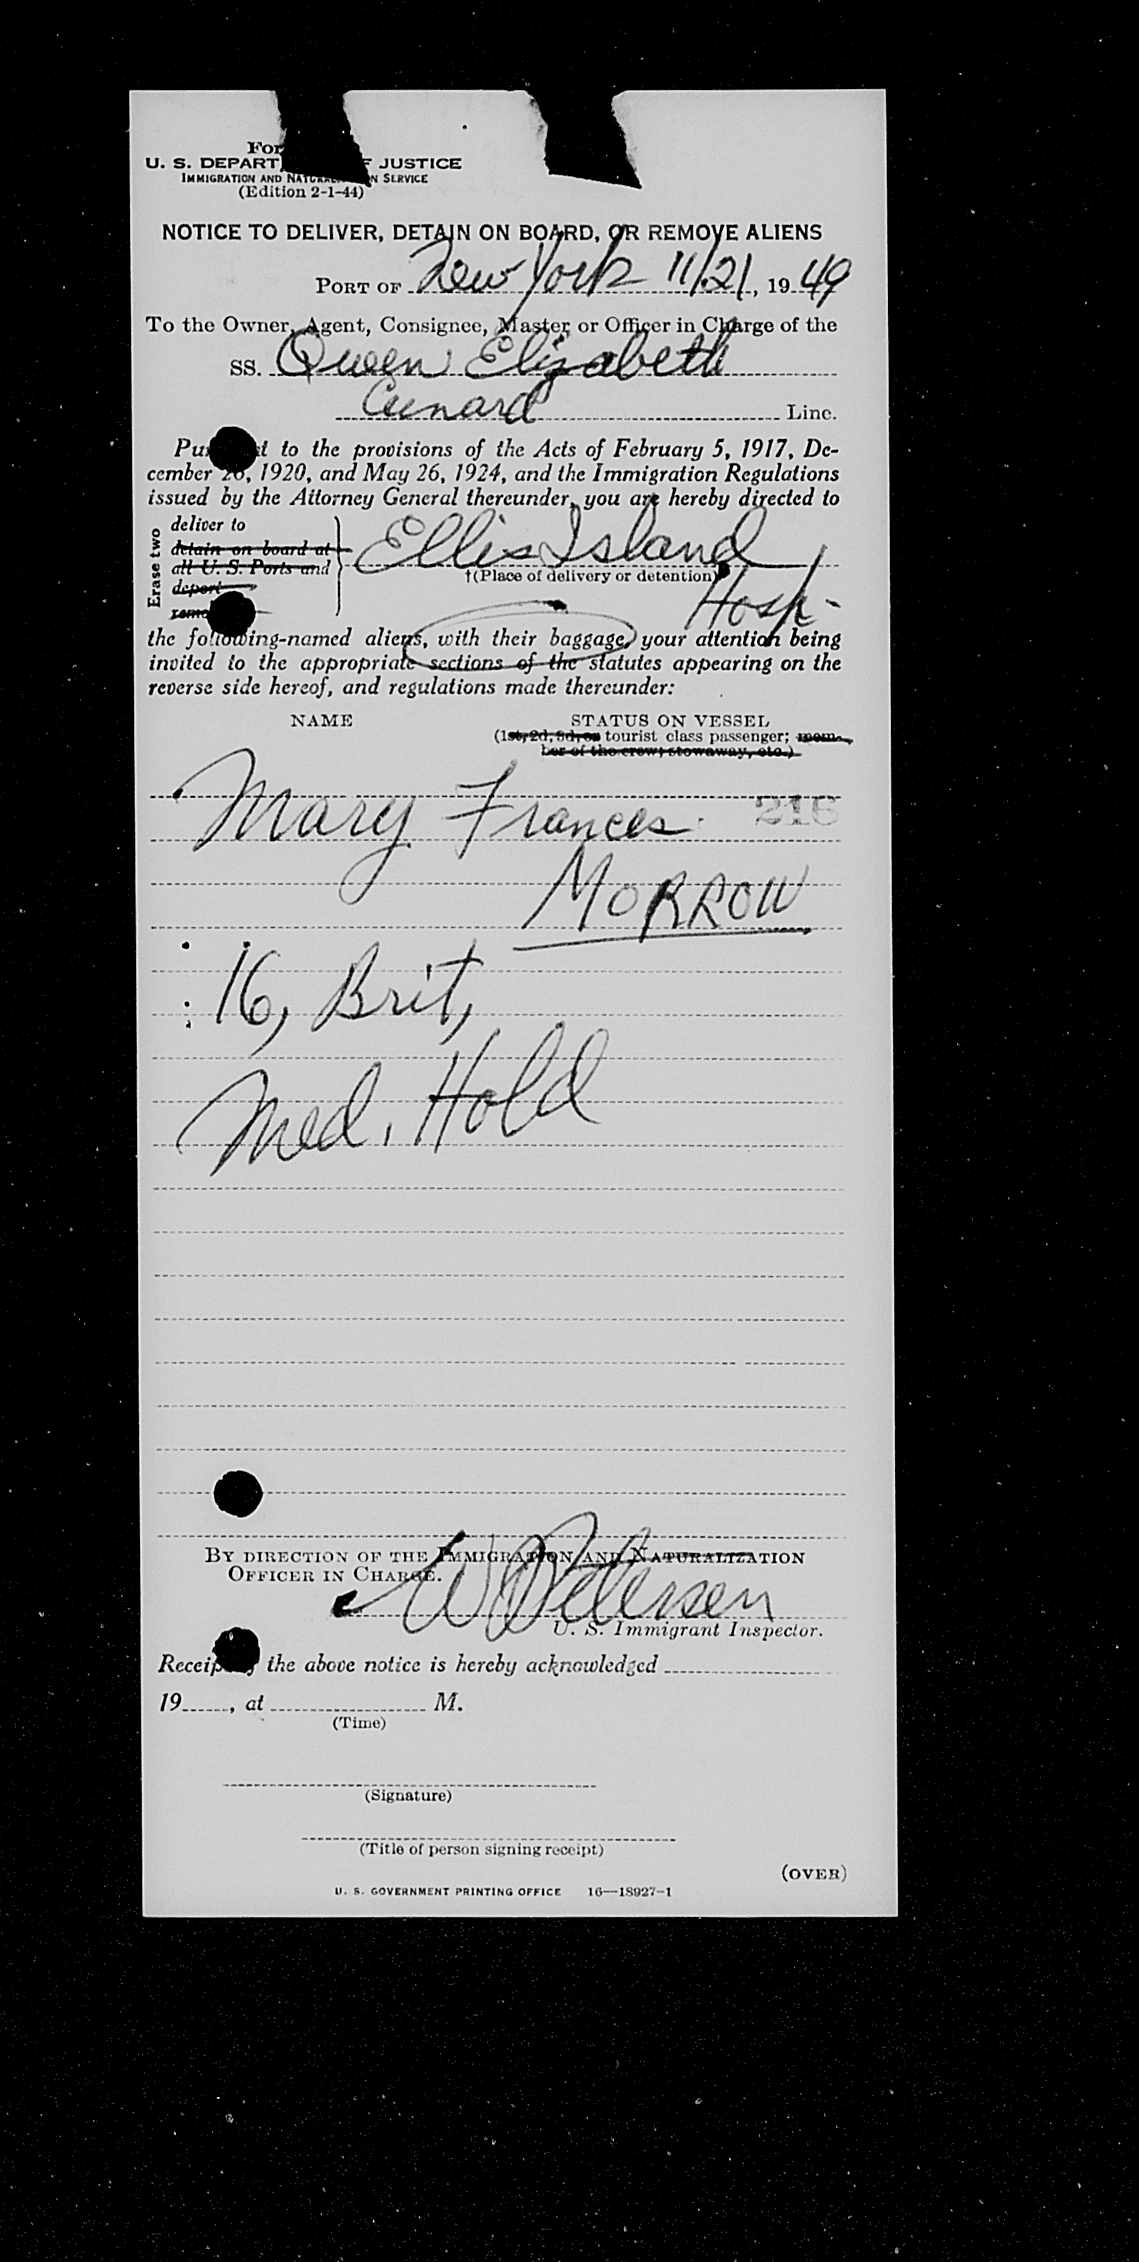 For
U. S. DEPART F JUSTICE
IMMIGRATION AND NATURAL N SERVICE
(Edition 2-1-44)
NOTICE TO DELIVER, DETAIN ON BOARD, OR REMOVE ALIENS
PORT OF New York 11/21, 1949
To the Owner, Agent, Consignee, Master or Officer in Charge of the
SS. Queen Elizabeth
Cunard Line.
Pu t to the provisions of the Acts of February 5, 1917, De-
cember 26, 1920, and May 26, 1924, and the Immigration Regulations
issued by the Attorney General thereunder, you are hereby directed to
Erase two
deliver to
detain on board at
all U. S. Ports and
deport
remo
Ellis Island
†(Place of delivery or detention)
Hosp.
the following-named aliens, with their baggage, your attention being
invited to the appropriate sections of the statutes appearing on the
reverse side hereof, and regulations made thereunder:
NAME STATUS ON VESSEL
(1st, 2d, 3d, or tourist class passenger; mem-
ber of the crew; stowaway, etc.)
Mary Frances 216
MORROW
16, Brit,
Med. Hold
BY DIRECTION OF THE IMMIGRATION AND NATURALIZATION
OFFICER IN CHARGE.
W Petersen
U. S. Immigrant Inspector.
Receip the above notice is hereby acknowledged
19 , at M.
(Time)
(Signature)
(Title of person signing receipt)
(OVER)
U. S. GOVERNMENT PRINTING OFFICE 16—18927-1